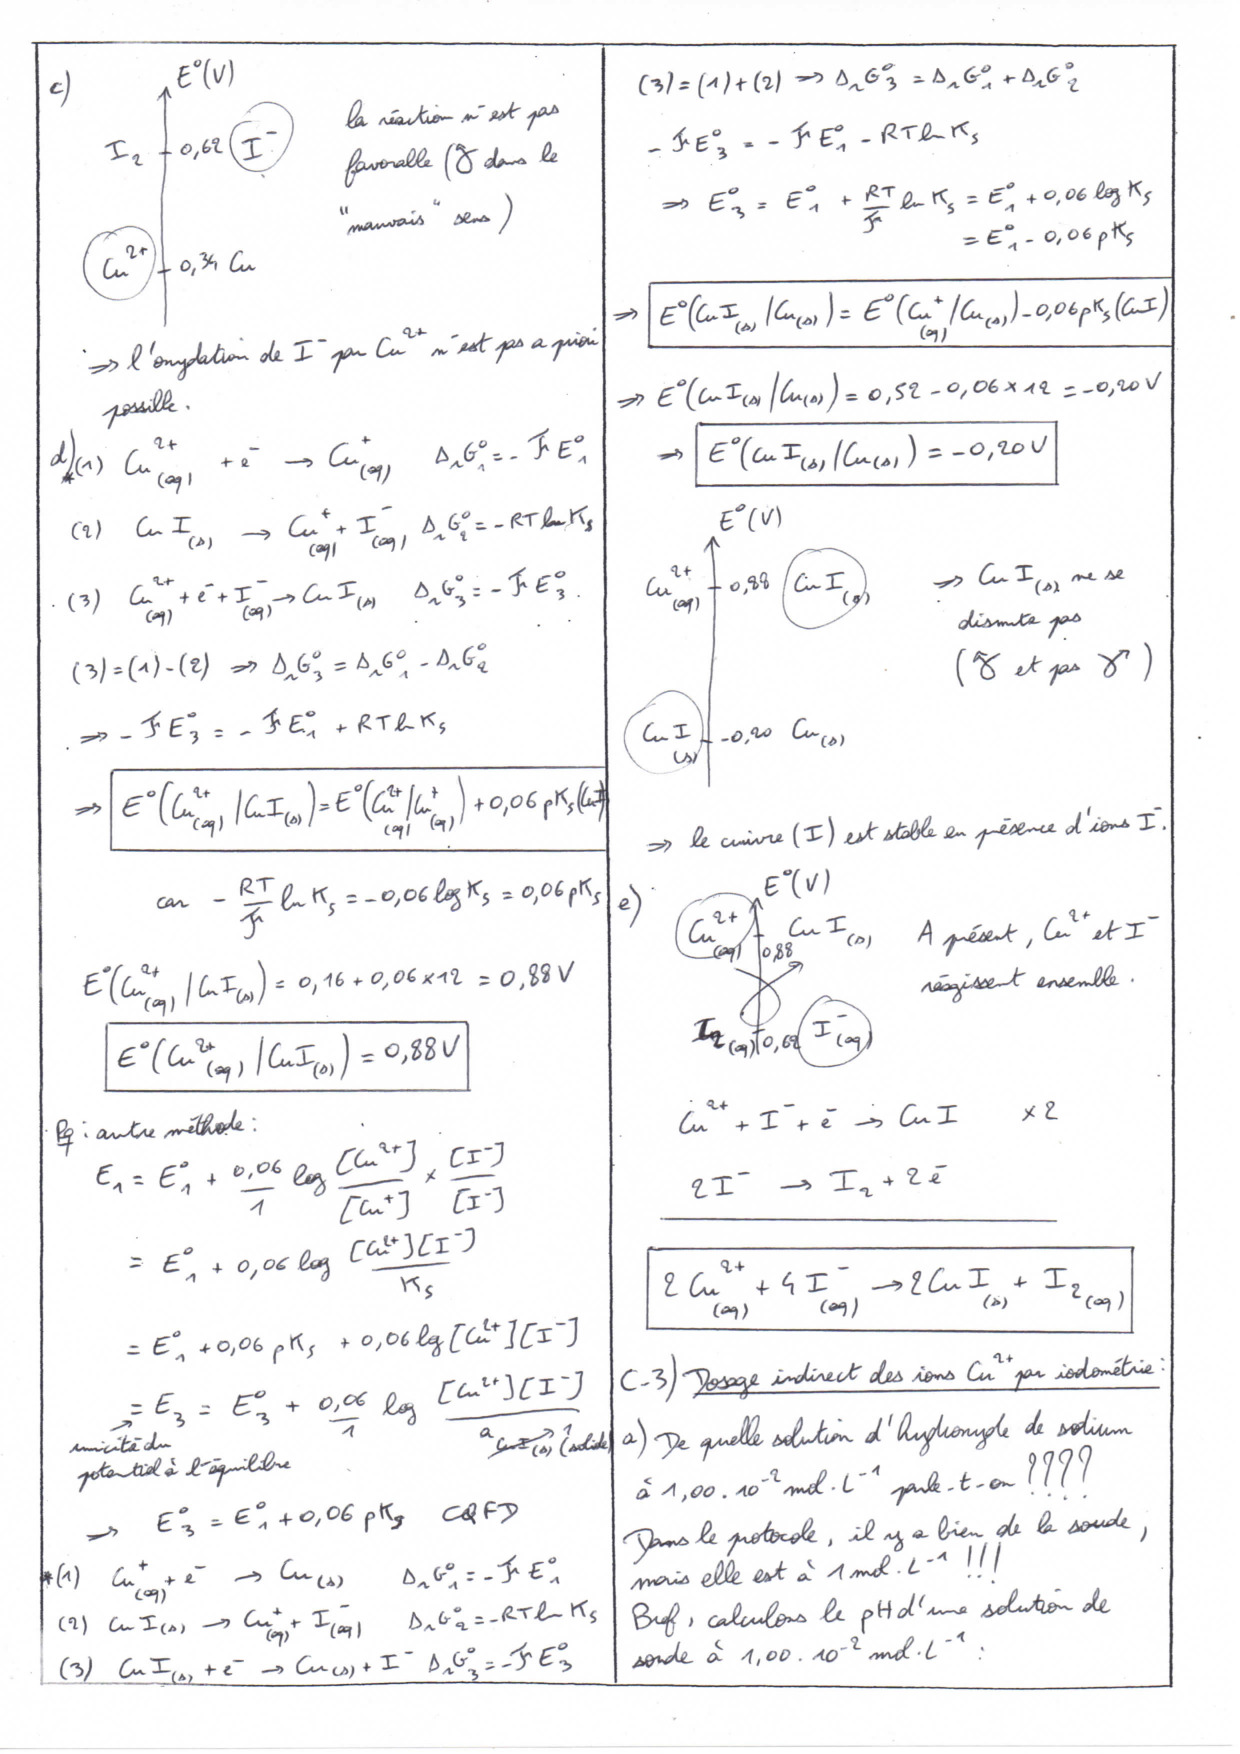 c)
E°(V)
I₂ 0,62 I⁻
Cu²⁺ 0,34 Cu
la réaction n'est pas
favorable (γ dans le
"mauvais" sens)
⇒ l'oxydation de I⁻ par Cu²⁺ n'est pas a priori
possible.
d) *(1) Cu²⁺(aq) + e⁻ → Cu⁺(aq) ΔrG°₁ = - F E°₁
(2) CuI(s) → Cu⁺(aq) + I⁻(aq) ΔrG°₂ = - RT ln Ks
(3) Cu²⁺(aq) + e⁻ + I⁻(aq) → CuI(s) ΔrG°₃ = - F E°₃.
(3) = (1) - (2) ⇒ ΔrG°₃ = ΔrG°₁ - ΔrG°₂
⇒ - F E°₃ = - F E°₁ + RT ln Ks
⇒ E°(Cu²⁺(aq) / CuI(s)) = E°(Cu²⁺(aq) / Cu⁺(aq)) + 0,06 pKs(CuI)
car - RT/F ln Ks = - 0,06 log Ks = 0,06 pKs
E°(Cu²⁺(aq) / CuI(s)) = 0,16 + 0,06 × 12 = 0,88 V
E°(Cu²⁺(aq) / CuI(s)) = 0,88 V
Rq : autre méthode :
E₁ = E°₁ + 0,06/1 log [Cu²⁺]/[Cu⁺] × [I⁻]/[I⁻]
= E°₁ + 0,06 log [Cu²⁺][I⁻]/Ks
= E°₁ + 0,06 pKs + 0,06 log [Cu²⁺][I⁻]
= E₃ = E°₃ + 0,06/1 log [Cu²⁺][I⁻]/a CuI(s) 1 (solide)
unicité du
potentiel à l'équilibre
⇒ E°₃ = E°₁ + 0,06 pKs CQFD
*(1) Cu⁺(aq) + e⁻ → Cu(s) ΔrG°₁ = - F E°₁
(2) CuI(s) → Cu⁺(aq) + I⁻(aq) ΔrG°₂ = - RT ln Ks
(3) CuI(s) + e⁻ → Cu(s) + I⁻ ΔrG°₃ = - F E°₃
(3) = (1) + (2) ⇒ ΔrG°₃ = ΔrG°₁ + ΔrG°₂
- F E°₃ = - F E°₁ - RT ln Ks
⇒ E°₃ = E°₁ + RT/F ln Ks = E°₁ + 0,06 log Ks
= E°₁ - 0,06 pKs
⇒ E°(CuI(s) / Cu(s)) = E°(Cu⁺(aq) / Cu(s)) - 0,06 pKs(CuI)
⇒ E°(CuI(s) / Cu(s)) = 0,52 - 0,06 × 12 = -0,20 V
⇒ E°(CuI(s) / Cu(s)) = -0,20 V
E°(V)
Cu²⁺(aq) 0,88 CuI(s)
CuI(s) -0,20 Cu(s)
⇒ CuI(s) ne se
dismute pas
(γ et pas γ)
⇒ le cuivre (I) est stable en présence d'ions I⁻.
e)
E°(V)
Cu²⁺(aq) 0,88 CuI(s)
I₂(aq) 0,62 I⁻(aq)
A présent, Cu²⁺ et I⁻
réagissent ensemble.
Cu²⁺ + I⁻ + e⁻ → CuI ×2
2I⁻ → I₂ + 2e⁻
2Cu²⁺(aq) + 4I⁻(aq) → 2CuI(s) + I₂(aq)
C-3) Dosage indirect des ions Cu²⁺ par iodométrie :
a) De quelle solution d'hydroxyde de sodium
à 1,00.10⁻² mol.L⁻¹ parle-t-on ????
Dans le protocole, il y a bien de la soude,
mais elle est à 1 mol.L⁻¹ !!!
Bref, calculons le pH d'une solution de
soude à 1,00.10⁻² mol.L⁻¹ :